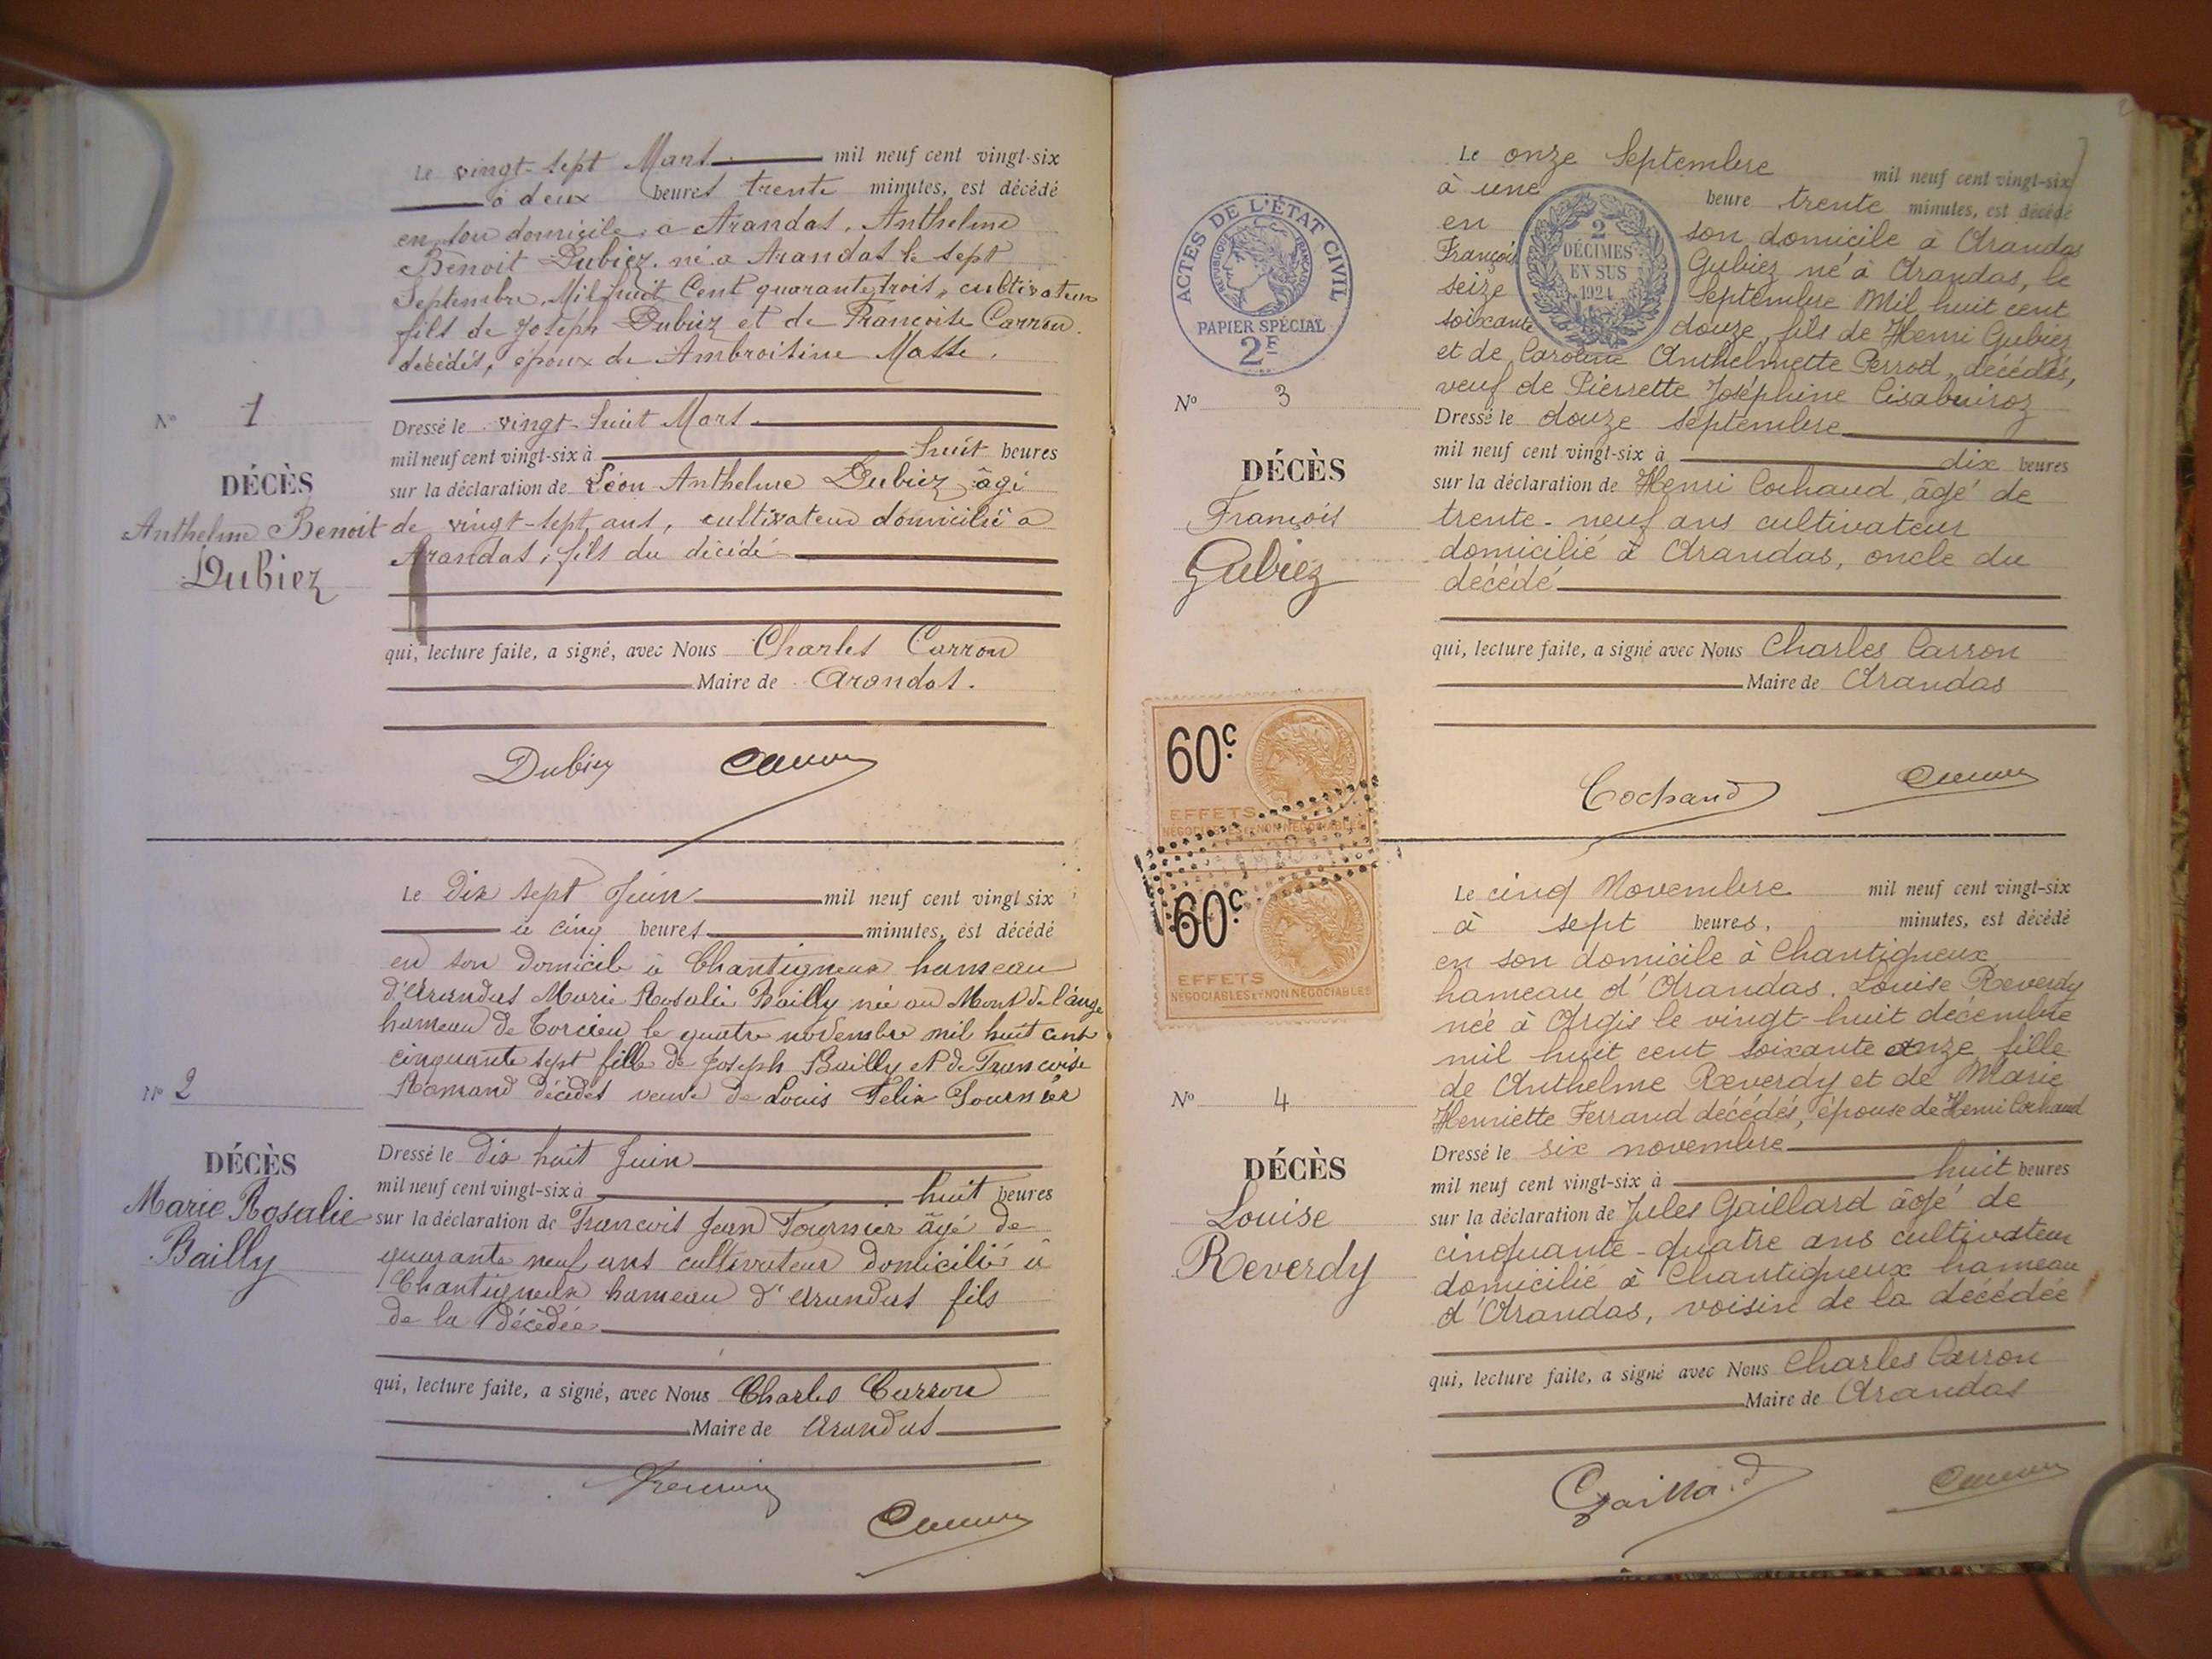 Le vingt-sept Mars mil neuf cent vingt-six
à deux heures trente minutes, est décédé
en son domicile, a Arandas, Anthelme
Benoit Dubiez. né a Arandas le sept
Septembre, Mil huit Cent quarante trois, cultivateur
fils de Joseph Dubiez et de Françoise Carron.
décédés, époux de Ambroisine Masse.
Nº 1
DÉCÈS
Anthelme Benoit
Dubiez
Dressé le vingt-huit Mars
mil neuf cent vingt-six à huit heures
sur la déclaration de Léon Anthelme Dubiez âgé
de vingt-sept ans, cultivateur domicilié a
Arandas, fils du décédé
qui, lecture faite, a signé, avec Nous Charles Carron
Maire de Arandas.
Dubiez Carron
Le Dix sept Juin mil neuf cent vingt six
à cinq heures minutes, est décédé
en son domicile à Chantigneux hameau
d'Arandas Marie Rosalie Bailly née au Mont de l'ange
hameau de Torcieu le quatre novembre mil huit cent
cinquante sept fille de Joseph Bailly et de Francoise
Ramand décédés veuve de Louis Felix Tournier
Nº 2
DÉCÈS
Marie Rosalie
Bailly
Dressé le dix huit Juin
mil neuf cent vingt-six à huit heures
sur la déclaration de Francois Jean Tournier âgé de
quarante neuf ans cultivateur domicilié à
Chantigneux hameau d'Arandas fils
de la décédée
qui, lecture faite, a signé, avec Nous Charles Carron
Maire de Arandas
Carron
ACTES DE L'ÉTAT CIVIL
RÉPUBLIQUE FRANÇAISE
PAPIER SPÉCIAL
2F
2
DÉCIMES
EN SUS
1924
Le onze Septembre mil neuf cent vingt-six
à une heure trente minutes, est décédé
en son domicile à Arandas
François Gubiez né à Arandas, le
seize Septembre Mil huit cent
soixante douze, fils de Henri Gubiez
et de Caroline Anthelmette Perrod, décédés,
veuf de Pierrette Joséphine Cisabuiroz
Nº 3
DÉCÈS
François
Gubiez
Dressé le douze septembre
mil neuf cent vingt-six à dix heures
sur la déclaration de Henri Cochaud, âgé de
trente-neuf ans cultivateur
domicilié à Arandas, oncle du
décédé
qui, lecture faite, a signé avec Nous Charles Carron
Maire de Arandas
60c
EFFETS
NÉGOCIABLES ET NON NÉGOCIABLES
60c
EFFETS
NÉGOCIABLES ET NON NÉGOCIABLES
Cochaud Carron
Le cinq Novembre mil neuf cent vingt-six
à sept heures, minutes, est décédé
en son domicile à Chantigneux
hameau d'Arandas. Louise Reverdy
née à Argis le vingt-huit décembre
mil huit cent soixante onze, fille
de Anthelme Reverdy et de Marie
Henriette Ferrand décédés, épouse de Henri Cochaud
Nº 4
DÉCÈS
Louise
Reverdy
Dressé le six novembre
mil neuf cent vingt-six à huit heures
sur la déclaration de Jules Gaillard âgé de
cinquante-quatre ans cultivateur
domicilié à Chantigneux hameau
d'Arandas, voisin de la décédée
qui, lecture faite, a signé avec Nous Charles Carron
Maire de Arandas
Gaillard Carron